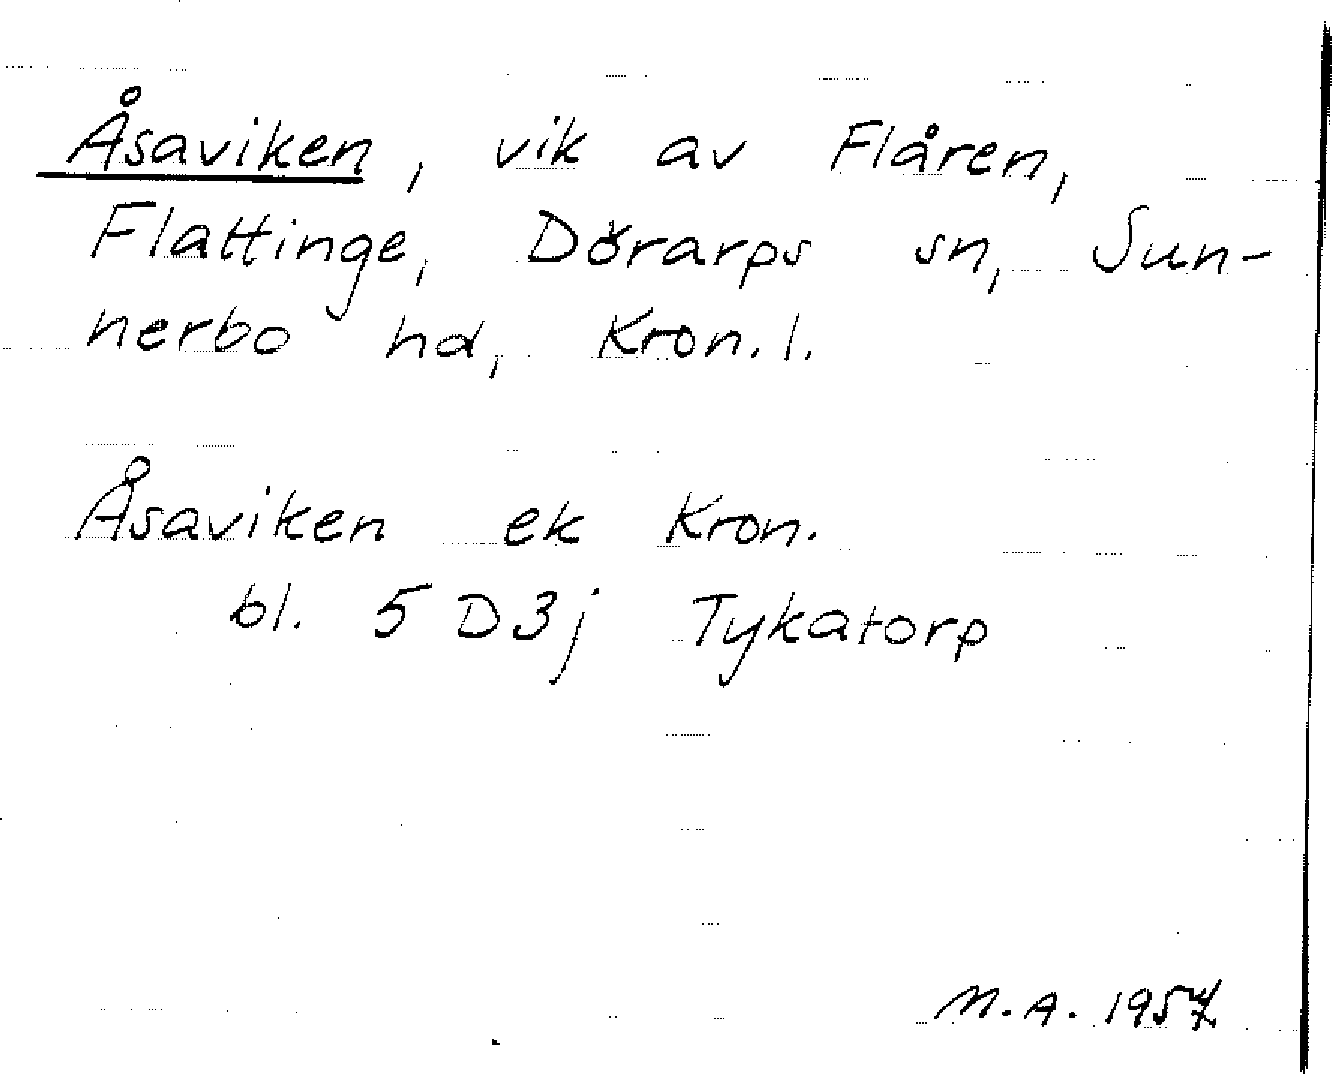 Åsaviken, vik av Flåren,
Flattinge, Dörarps sn, Sun-
nerbo hd, Kron. l.
Åsaviken ek Kron.
bl. 5 D 3 j Tykatorp
M.A. 1957